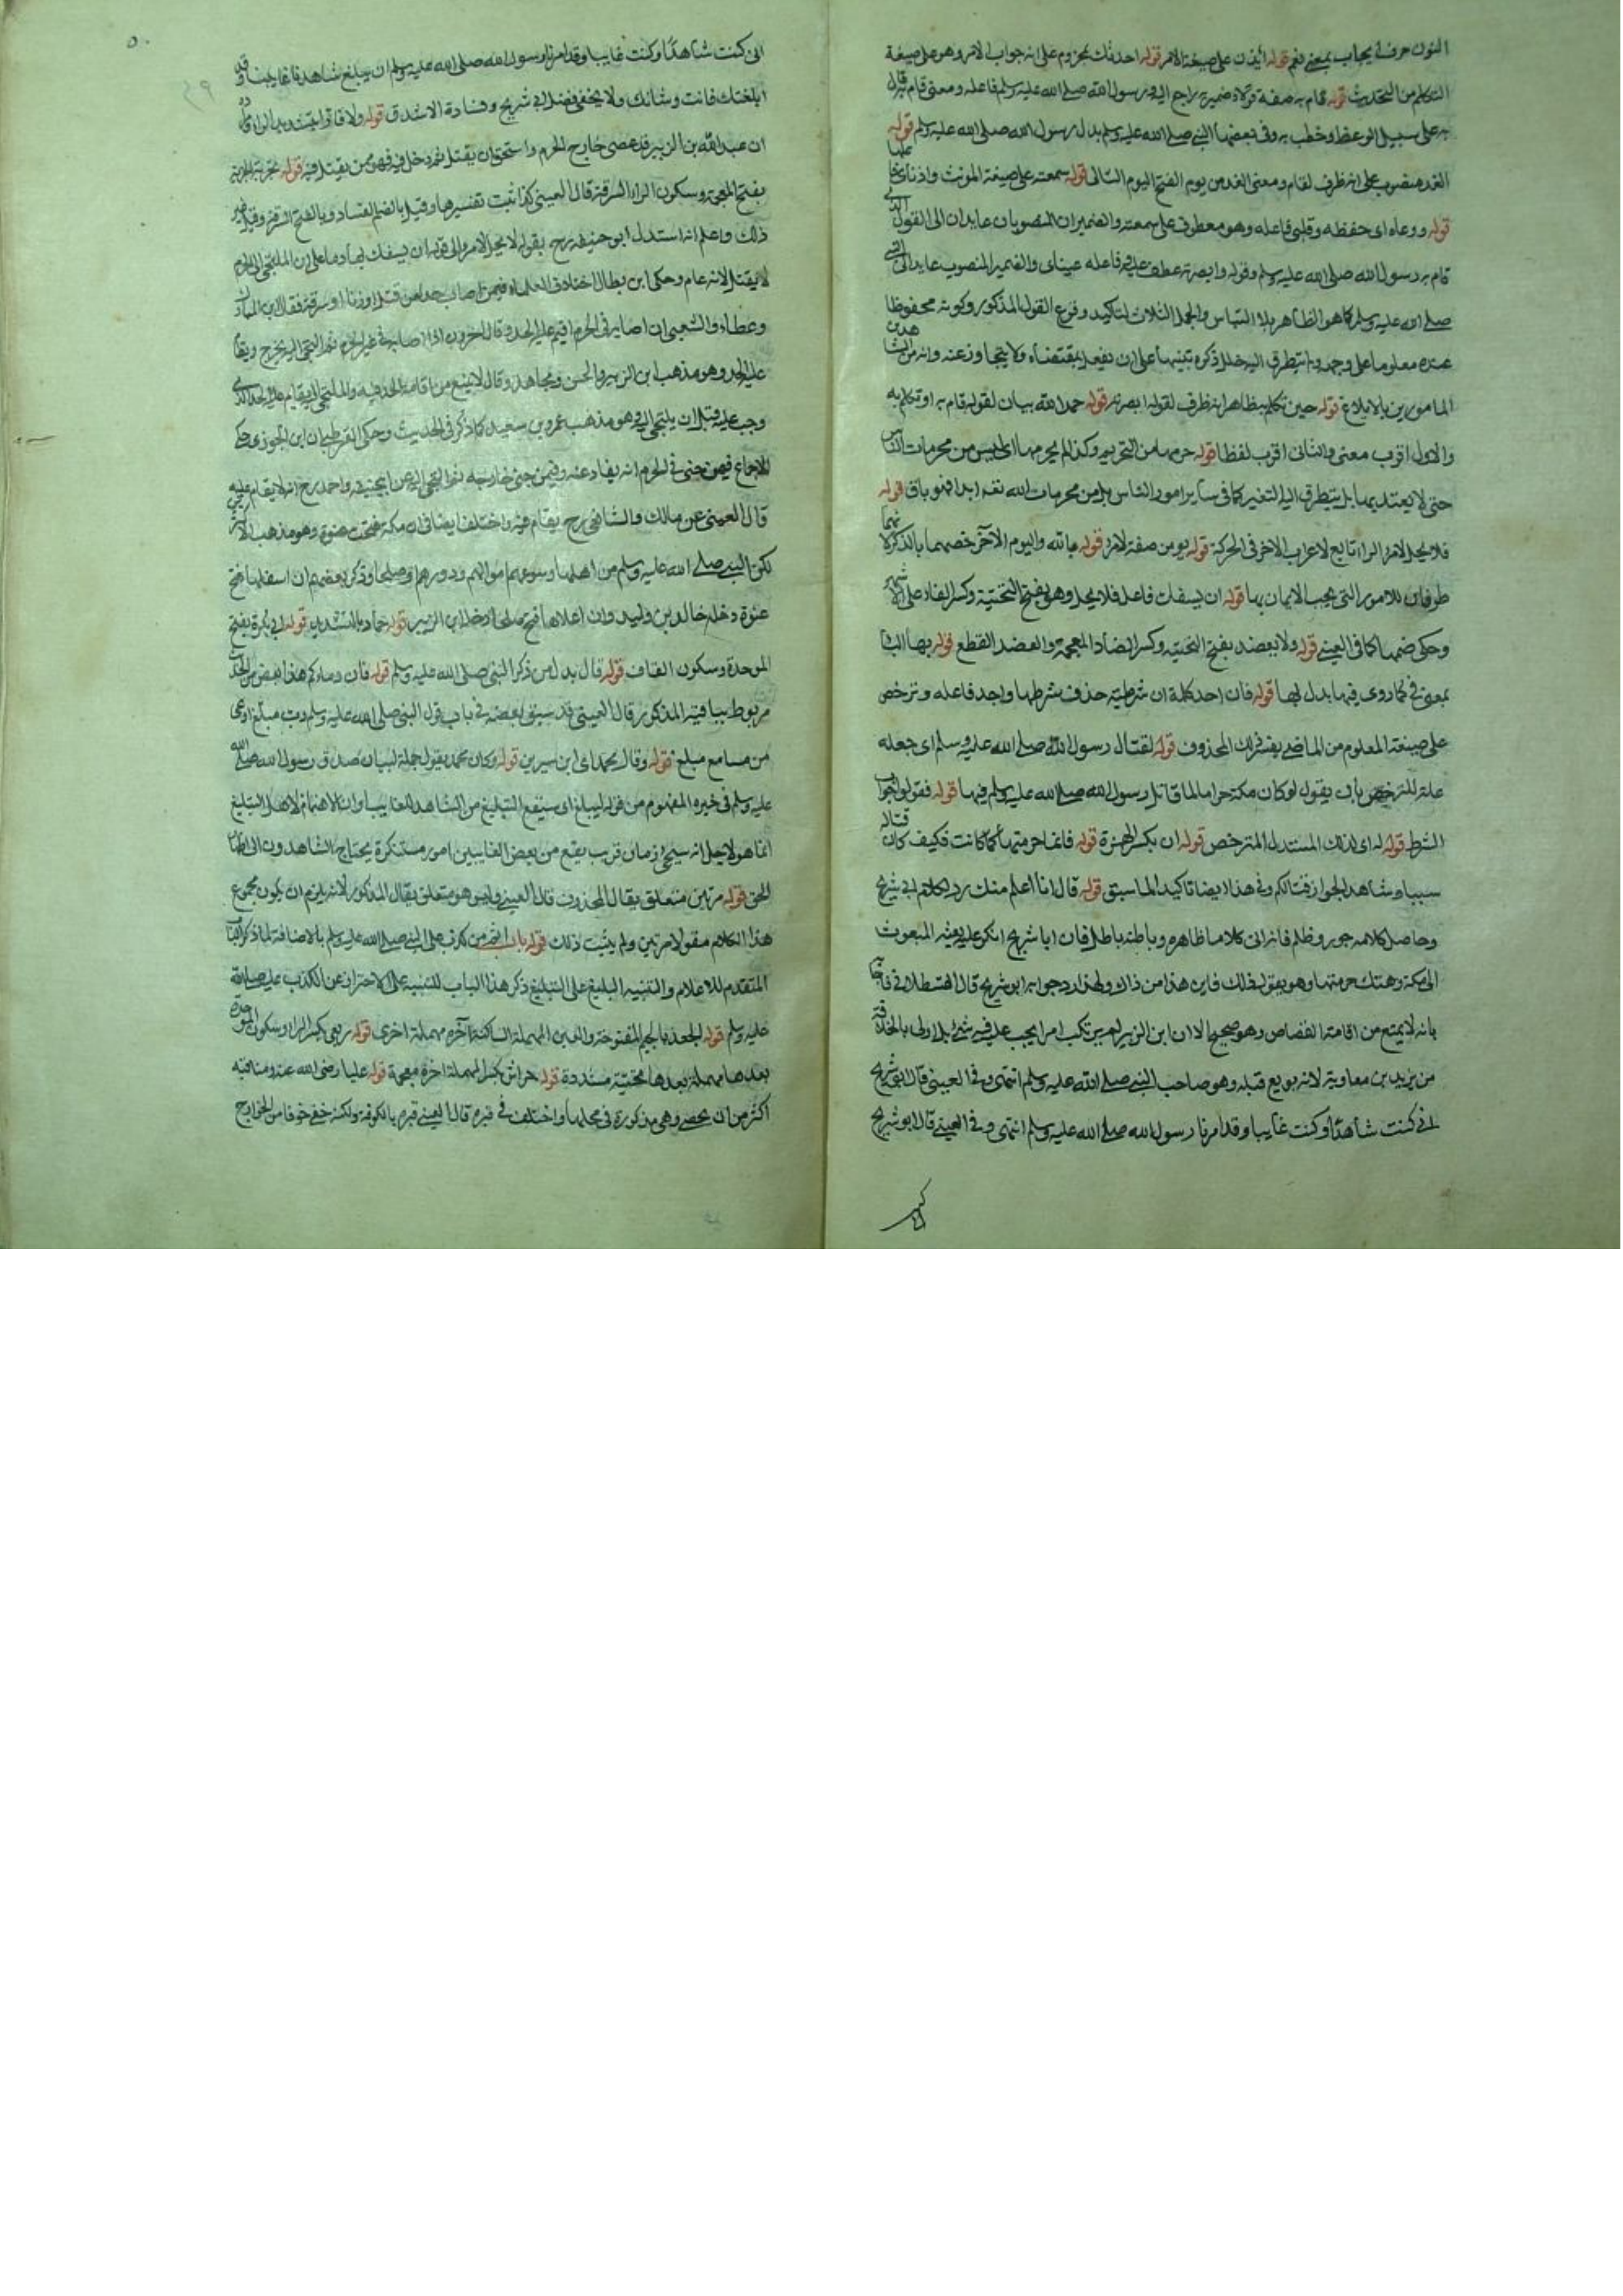 النون حرف ايجاب بمعنى نعم قوله ائذن على صيغة الامر قوله احدثك مجزوم على انه جواب الامر وهو على صيغة
التكلم من التحديث قوله قام به صفة قولا وضمير به راجع اليه ورسول الله صلى الله عليه وسلم فاعله ومعنى قام به قال
به على سبيل الوعظ وخطب به وفى بعضها النبي صلى الله عليه وسلم بدل رسول الله صلى الله عليه وسلم قوله
الغد منصوب على انه ظرف لقام ومعنى الغد من يوم الفتح اليوم التالى قوله سمعته على صيغة المونث واذناى فاعلها
قوله ووعاه اى حفظه وقلبى فاعله وهو معطوف على سمعته والضميران المنصوبان عايدان الى القول الذى
قام به رسول الله صلى الله عليه وسلم وقوله وابصرته عطف عليه فاعله عيناى والضمير المنصوب عايد الى النبي
صلى الله عليه وسلم كما هو الظاهر بلا التباس والجمل الثلاث لتاكيد وقوع القول المذكور وكونه محفوظا
عنده معلوما على وجه ما يتطرق اليه خلل ذكره تنبيها على ان يفعل بمقتضاه ولا يتجاوز عنه وانه من الشاهدين
المامورين بالابلاغ قوله حين تكلم بظاهر انه ظرف لقوله ابصرته قوله حمد الله بيان لقوله قام به او تكلم به
والاول اقرب معنى والثانى اقرب لفظا قوله حرمها من التحريم وكذا لم يحرمها اى ليس من محرمات الناس
حتى لا يعتد بها بل يتطرق اليه التغير كما فى ساير امور الناس بل من محرمات الله نعم ابدا فهو باق قوله
فلا يحل لامرء الراء تابع لاعراب الاخر فى الحركة قوله يومن صفة لامرء قوله بالله واليوم الآخر خصهما بالذكر لانهما
طرفان للامور التى يجب الايمان بها قوله ان يسفك فاعل فلا يحل وهو بفتح التحتية وكسر الفاء على الاشهر
وحكى ضمها كما فى العينى قوله ولا يعضد بفتح التحتية وكسر الضاد المعجمة والعضد القطع قوله بها الباء
بمعنى فى كما روى فيها بدل بها قوله فان احد كلمة ان شرطية حذف شرطها واحد فاعله وترخص
على صيغة المعلوم من الماضى يفسر ذلك المحذوف قوله لقتال رسول الله صلى الله عليه وسلم اى جعله
علة للترخص بان يقول لو كان مكة حراما لما قاتل رسول الله صلى الله عليه وسلم فيها قوله فقولوا جواب
الشرط قوله له اى لذلك المستدل المترخص قوله ان بكسر الهمزة قوله فانما حرمتها كما كانت فكيف كان قتاله
سببا وشاهد الجواز قتالكم وفى هذا ايضا تاكيد لما سبق قوله قال انا اعلم منك رد لكلام ابى شريح
وحاصل كلامه جور وظلم فانه اتى كلاما ظاهره وباطنه باطل فان ابا شريح انكر عليه بعثه المبعوث
الى مكة وهتك حرمتها وهو يقول ذلك فاين هذا من ذاك ولهذا رد جوابه ابو شريح قال القسطلانى فاجابه
بانه لا يمتنع من اقامة القصاص وهو صحيح الا ان ابن الزبير لم يرتكب امرا يجب عليه فيه شئ بل اولى بالخلافة
من يزيد بن معاوية لانه بويع قبله وهو صاحب النبي صلى الله عليه وسلم انتهى وفى العينى قال ابو شريح
انى كنت شاهدا وكنت غايبا وقد امرنا رسول الله صلى الله عليه وسلم انتهى وفى العينى قال ابو شريح
٥٠
٤٩
انى كنت شاهدا وكنت غايبا وقد امرنا رسول الله صلى الله عليه وسلم ان يبلغ شاهدنا غايبنا وقد
ابلغتك فانت وشانك ولا يخفى فضل ابى شريح وفسادة الاشدق قوله ولا فارا بتشديد الراء
ان عبد الله بن الزبير قد عصى خارج الحرم واستحق ان يقتل ثم دخل فيه فهو ممن يقتل فيه قوله بخربة الخربة
بفتح المعجمة وسكون الراء السرقة قال العينى كذا ثبت تفسيرها وقيل بالضم الفساد وبالفتح السرقة وقيل غير
ذلك واعلم انه استدل ابو حنيفة رح بقوله لا يحل لامرء الى قوله ان يسفك بها دما على ان الملتجى الى الحرم
لا يقتل لانه عام وحكى ابن بطال اختلاف العلماء فيمن اصاب حدا من قتل او زنا او سرقة فقال ابن عباس
وعطاء والشعبى ان اصابه فى الحرم اقيم عليه الحد وقال اخرون اذا اصابه فى غير الحرم ثم التجى اليه يخرج ويقام
عليه الحد وهو مذهب ابن الزبير والحسن ومجاهد وقال لا يمنع من اقامة الحد فيه والملتجى اليه يقام عليه الحد الذى
وجب عليه قبل ان يلتجى اليه وهو مذهب عمرو بن سعيد كما ذكر فى الحديث وحكى القرطبى ان ابن الجوزى حكى
الاجماع فيمن جنى فى الحرم انه يقاد عنه وفيمن جنى خارجه ثم التجى اليه عن ابى حنيفة واحمد رح انه لا يقام عليه
قال العينى عن مالك والشافعى رح يقام فيه واختلف ايضا فى ان مكة فتحت عنوة وهو مذهب الاكثر
لكن النبي صلى الله عليه وسلم من اهلها وسوغهم اموالهم ودورهم او صلحا وذكر بعضهم ان اسفلها فتح
عنوة دخله خالد بن وليد وان اعلاها فتح صلحا دخله ابن الزبير قوله حماد بالتشديد قوله ابى بكرة بفتح
الموحدة وسكون القاف قوله قال بدل من ذكر النبي صلى الله عليه وسلم قوله فان دماءكم هذا بعض من الحديث
مربوط بباقيه المذكور قال العينى قد سبق بعضه فى باب قول النبي صلى الله عليه وسلم رب مبلغ اوعى
من سامع مبلغ قوله وقال محمد اى ابن سيرين قوله وكان محمد يقول جملة لبيان صدق رسول الله صلى الله
عليه وسلم فى خبره المفهوم من قوله ليبلغ اى سيقع التبليغ من الشاهد للغايب وان الاهتمام لاهل التبليغ
انما هو لاجل انه سيجئ زمان قريب يقع من بعض الغايبين امور مستنكرة يحتاج الشاهدون الى اظهار
الحق قوله مرتين متعلق بقال المحذوف قال العينى وليس هو متعلق بقال المذكور لانه يلزم ان يكون مجموع
هذا الكلام مقولا مرتين ولم يثبت ذلك قوله باب اثم من كذب على النبي صلى الله عليه وسلم بالاضافة لما ذكر الباب
المتقدم للاعلام والتنبيه البليغ على التبليغ ذكر هذا الباب للتنبيه على الاحتراز عن الكذب عليه صلى الله
عليه وسلم قوله الجعد بالجيم المفتوحة والعين المهملة الساكنة آخره مهملة اخرى قوله ربعى بكسر الراء وسكون الموحدة
بعدها مهملة بعدها تحتية مشددة قوله حراش بكسر المهملة اخره معجمة قوله عليا رضى الله عنه ومناقبه
اكثر من ان يحصى وهى مذكورة فى محلها واختلف فى قبره قال العينى قبره بالكوفة ولكنه خفى خوفا من الخوارج